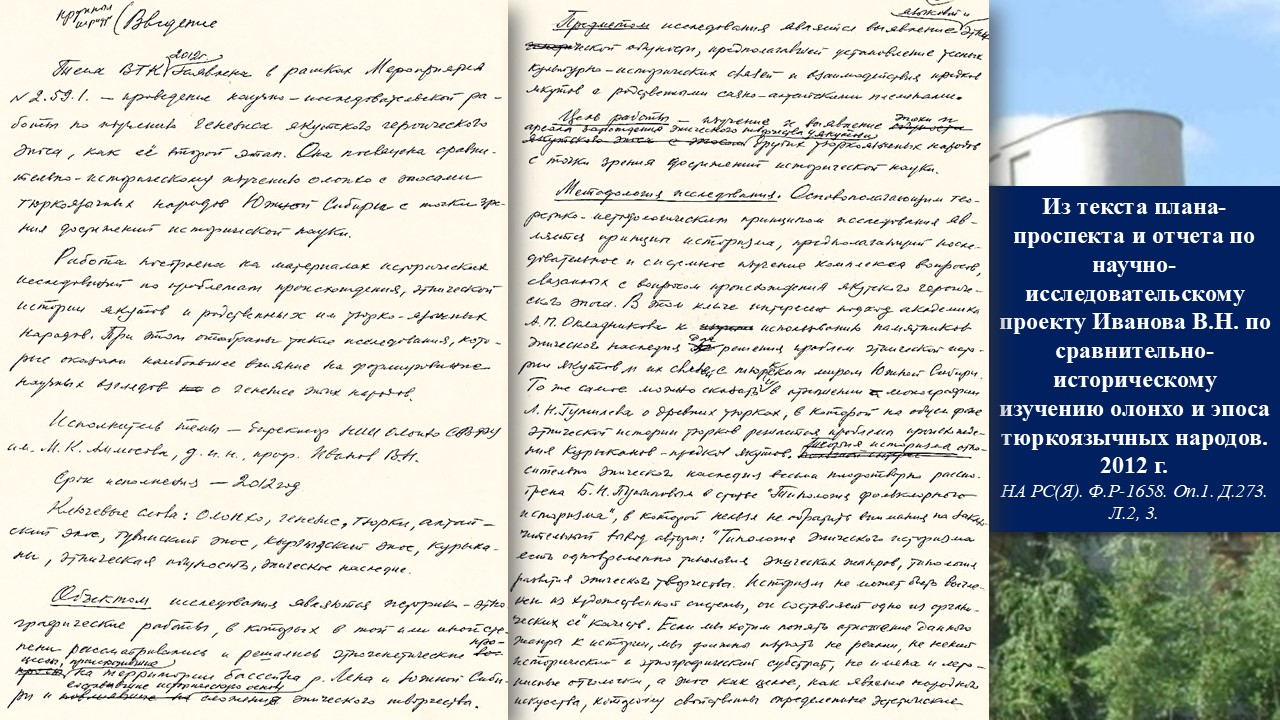 крупным шрифт (Введение
Тема ВТК 2012г. заявлена в рамках Мероприятия
№ 2.59.1. – проведение научно-исследовательской ра-
боты по изучению генезиса якутского героического
эпоса, как её второй этап. Она посвящена сравни-
тельно-историческому изучению олонхо с эпосами
тюркоязычных народов Южной Сибири с точки зре-
ния достижений исторической науки.
Работа построена на материалах исторических
исследований по проблемам происхождения, этнической
истории якутов и родственных им тюрко-язычных
народов. При этом отобраны такие исследования, кото-
рые оказали наибольшее влияние на формирование
научных взглядов о генезисе этих народов.
Исполнитель темы – директор НИИ Олонхо СВФУ
им. М.К. Аммосова, д.и.н., проф. Иванов В.Н.
Срок исполнения – 2012 год.
Ключевые слова: Олонхо, генезис, тюрки, алтай-
ский эпос, тувинский эпос, кыргызский эпос, курыка-
ны, этническая общность, эпическое наследие.
Объектом исследования являются историко-этно-
графические работы, в которых в той или иной сте-
пени рассматривались и решались этногенетические про-
цессы, происходившие на территории бассейна р. Лена и Южной Сиби-
ри и создавшие историческую основу сложения эпического творчества.
языковой и
Предметом исследования является выявление этни-
ческой общности, предполагавшей установление тесных
культурно-исторических связей и взаимодействия предков
якутов с родственными саяно-алтайскими племенами.
Цель работы – изучение и выявление эпохи и
ареала зарождения эпического творчества у якутов
других тюркоязычных народов
с точки зрения достижений исторической науки.
Методология исследования. Основополагающим тео-
ретико-методологическим принципом исследования яв-
ляется принцип историзма, предполагающий после-
довательное и системное изучение комплекса вопросов,
связанных с вопросом происхождения якутского героиче-
ского эпоса. В этом ключе интересен подход академика
А.П. Окладникова к использованию памятников
эпического наследия для решения проблем этнической исто-
рии якутов и их связей с тюркским миром Южной Сибири.
То же самое можно сказать и в отношении монографии
Л.Н. Гумилева о древних тюрках, в которой на общем фоне
этнической истории тюрков решаются проблемы происхожде-
ния Курыканов-предков якутов. Теория историзма отно-
сительно эпического наследия весьма плодотворно рассмо-
трена Б.Н. Путиловым в статье "Типология фольклорного
историзма", в которой нельзя не обратить внимания на заклю-
чительный вывод автора: "Типология эпического историзма
есть одновременно типология эпических жанров, типология
развития эпического творчества. Историзм не может быть вычле-
нен из художественной системы, он составляет одно из органи-
ческих её качеств. Если мы хотим понять отношение данного
жанра к истории, мы должны искать не реалии, не некий
исторический и этнографический субстрат, не имена и лето-
писные отголоски, а эпос как целое, как явление народного
искусства, которому свойственны определенные эстетические
Из текста плана-
проспекта и отчета по
научно-
исследовательскому
проекту Иванова В.Н. по
сравнительно-
историческому
изучению олонхо и эпоса
тюркоязычных народов.
2012 г.
НА РС(Я). Ф.Р-1658. Оп.1. Д.273.
Л.2, 3.